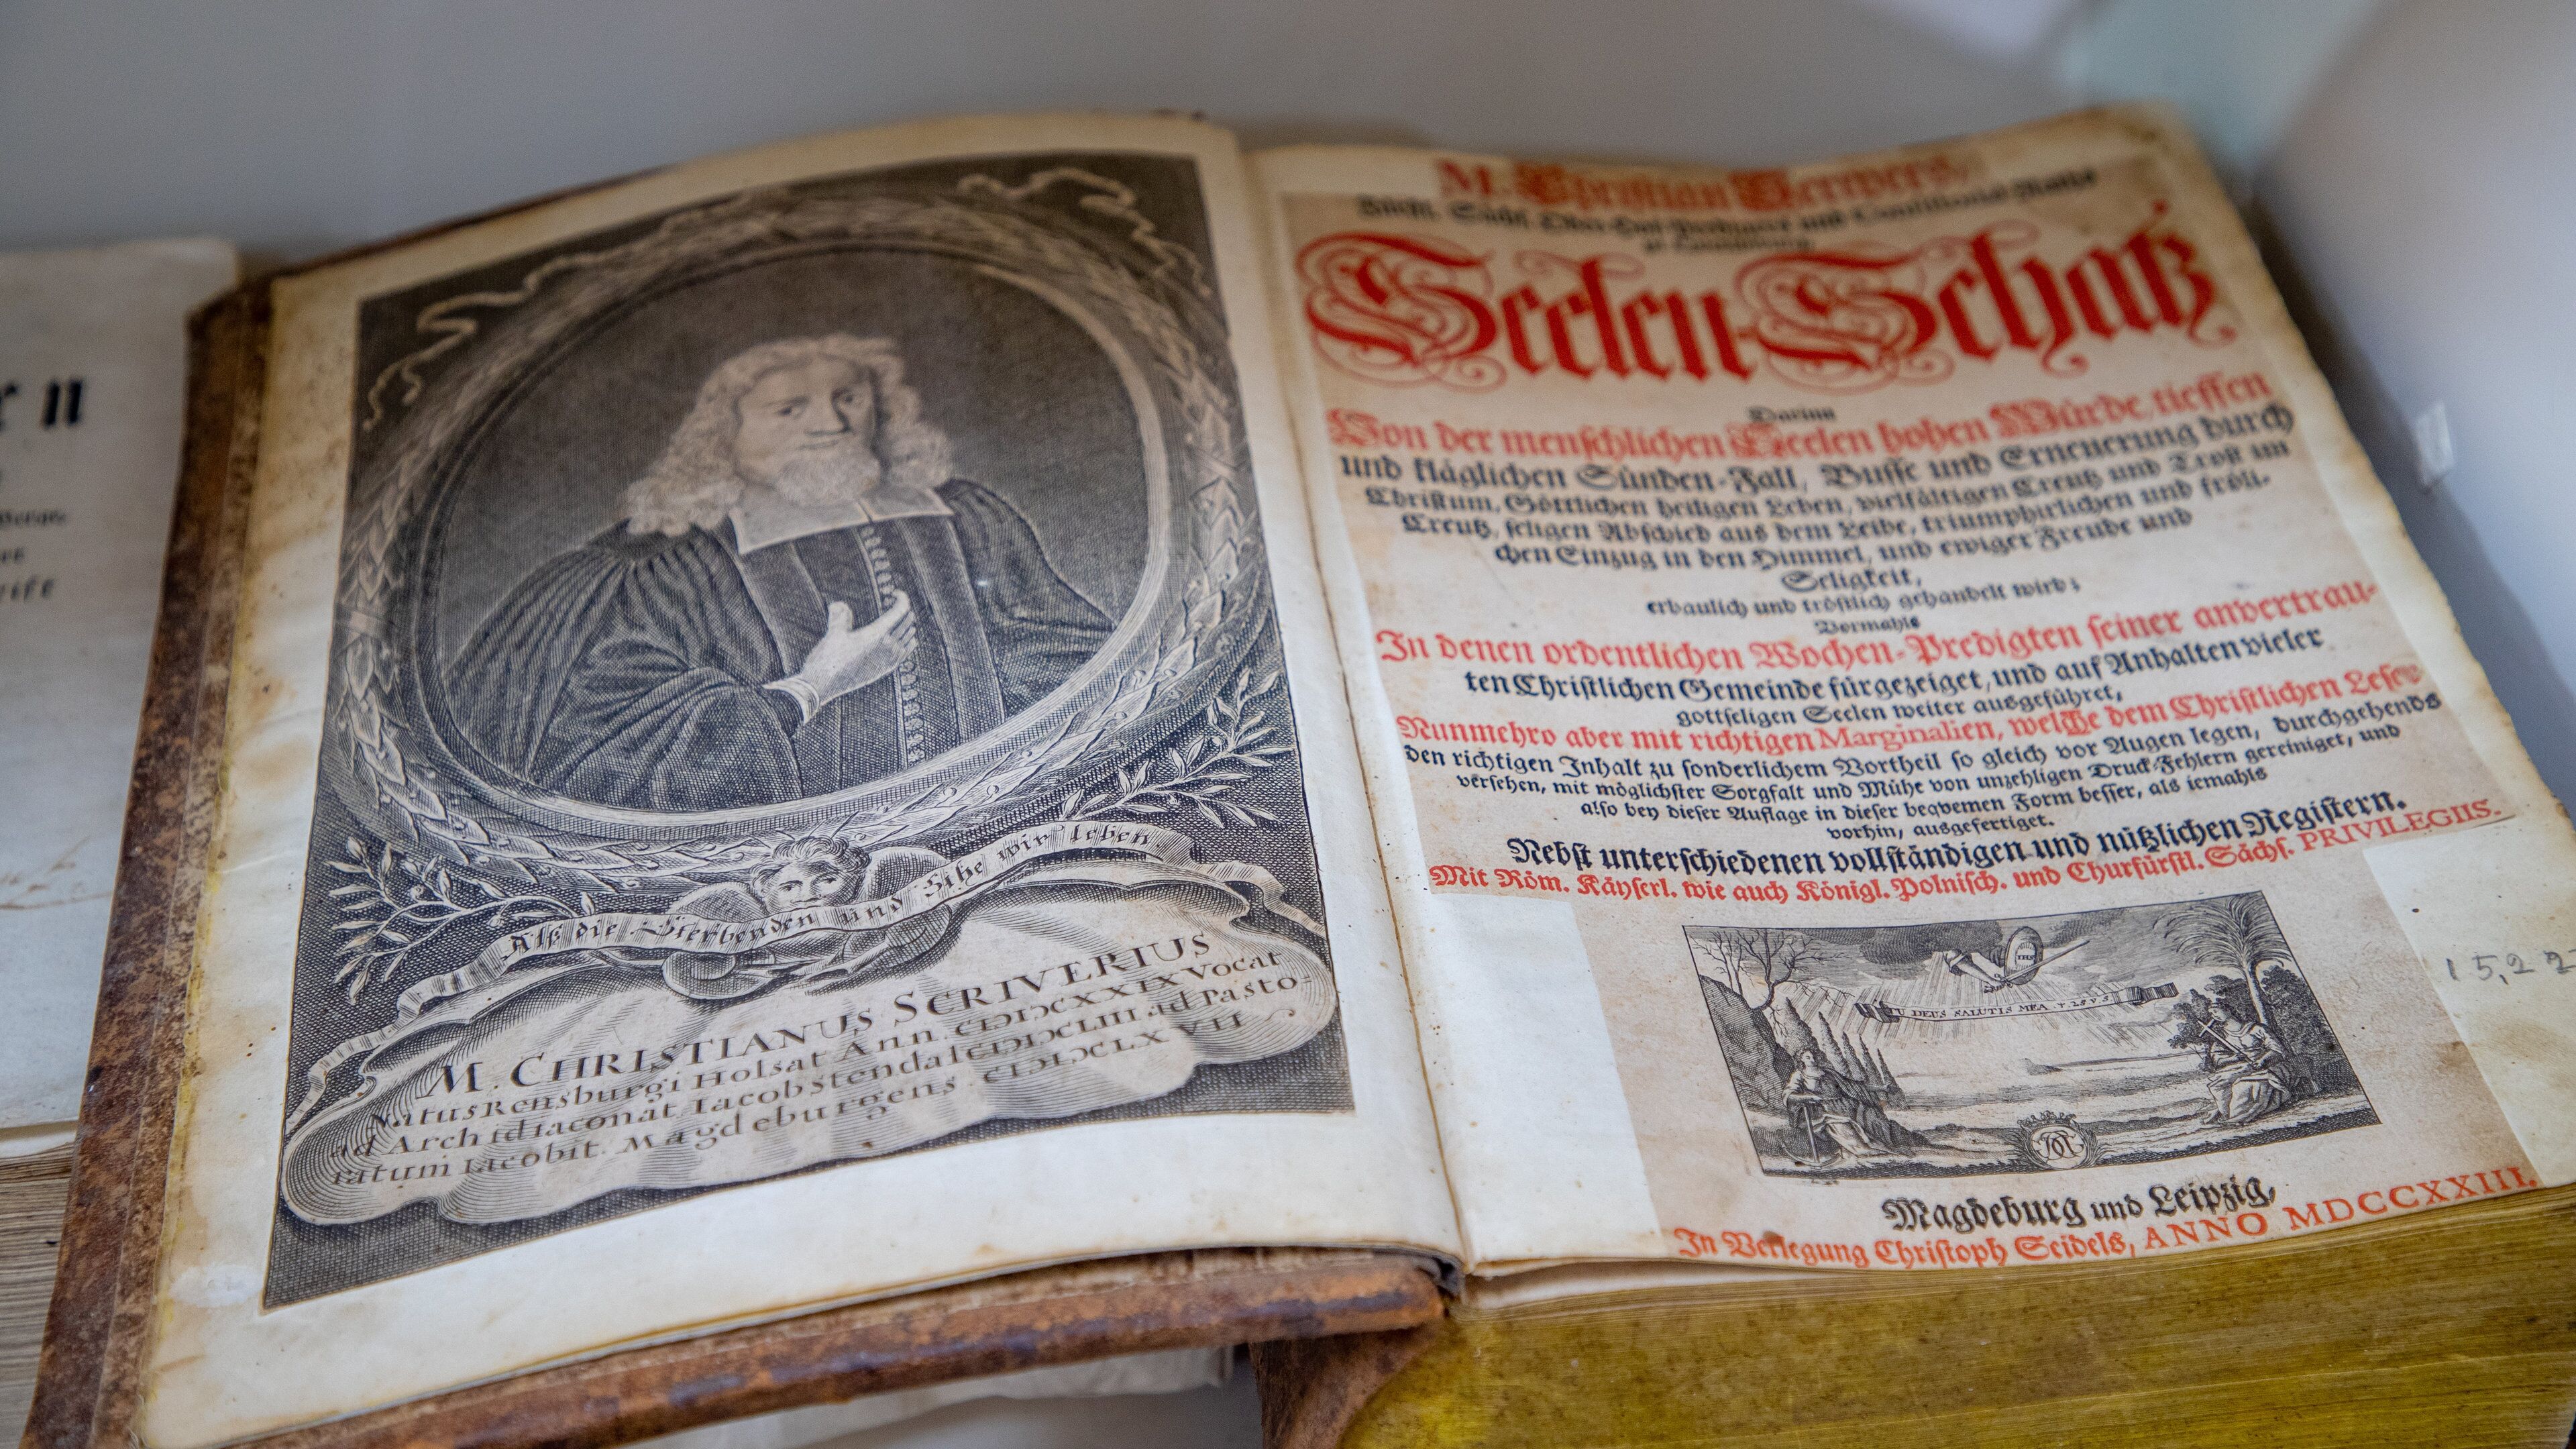 Als die Sterbenden und Sihe wir leben
M. CHRISTIANUS SCRIVERIUS
Natus Rensburgi Holsat Ann. CIƆIƆCXXIX Vocat
ad Archidiaconat. Iacobstendal CIƆIƆCLIII ad Pasto-
ratum Iacobit. Magdeburgens. CIƆIƆCLXVII
M. Christian Scrivers,
Fürstl. Sächs. Ober-Hof-Predigers und Consistorial-Raths
Seelen-Schatz
Darinn
Von der menschlichen Seelen hohen Würde, tieffen
und kläglichen Sünden-Fall, Busse und Erneuerung durch
Christum, Göttlichen heiligen Leben, vielfältigen Creutz und Trost im
Creutz, seligen Abschied aus dem Leibe, triumphirlichen und fröli-
chen Einzug in den Himmel, und ewiger Freude und
Seligkeit,
erbaulich und tröstlich gehandelt wird;
Vormahls
In denen ordentlichen Wochen-Predigten seiner anvertrau-
ten Christlichen Gemeinde fürgezeiget, und auf Anhalten vieler
gottseligen Seelen weiter ausgeführet,
Nunmehro aber mit richtigen Marginalien, welche dem Christlichen Leser
den richtigen Inhalt zu sonderlichem Vortheil so gleich vor Augen legen, durchgehends
versehen, mit möglichster Sorgfalt und Mühe von unzehligen Druck-Fehlern gereiniget, und
also bey dieser Auflage in dieser beqvemen Form besser, als iemahls
vorhin, ausgefertiget.
Nebst unterschiedenen vollständigen und nützlichen Registern.
Mit Röm. Käyserl. wie auch Königl. Polnisch. und Churfürstl. Sächs. PRIVILEGIIS.
TU DEUS SALUTIS MEA
15,22
Magdeburg und Leipzig,
In Verlegung Christoph Seidels, ANNO MDCCXXIII.